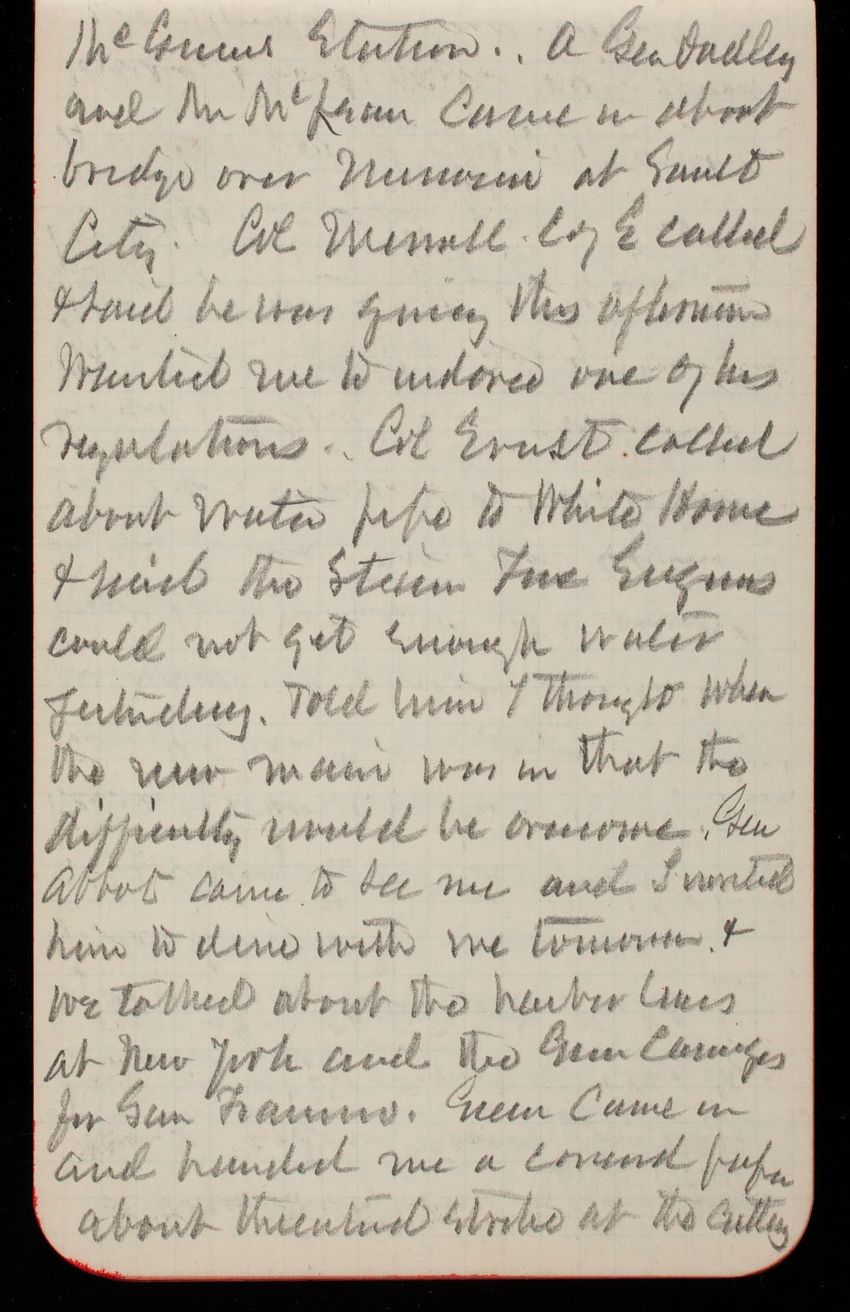 Station.. A Gen Dudley
and Mr came in about
bridge over Missouri at Sault
City. Col Merrill C of E called
& said he was going this afternoon
Wanted me to indorse one of his
regulations.. Col Ernst called
about water pipe to White House
& said the Steam Fire Engines
could not get enough water
yesterday. Told him I thought when
the new main was in that the
difficulty would be overcome. Gen
Abbot came to see me and I invited
him to dine with me tomorrow. &
we talked about the harbor lines
at New York and the Gun Carriages
for San Francisco. Green came in
and handed me a paper
about threatened strike at the